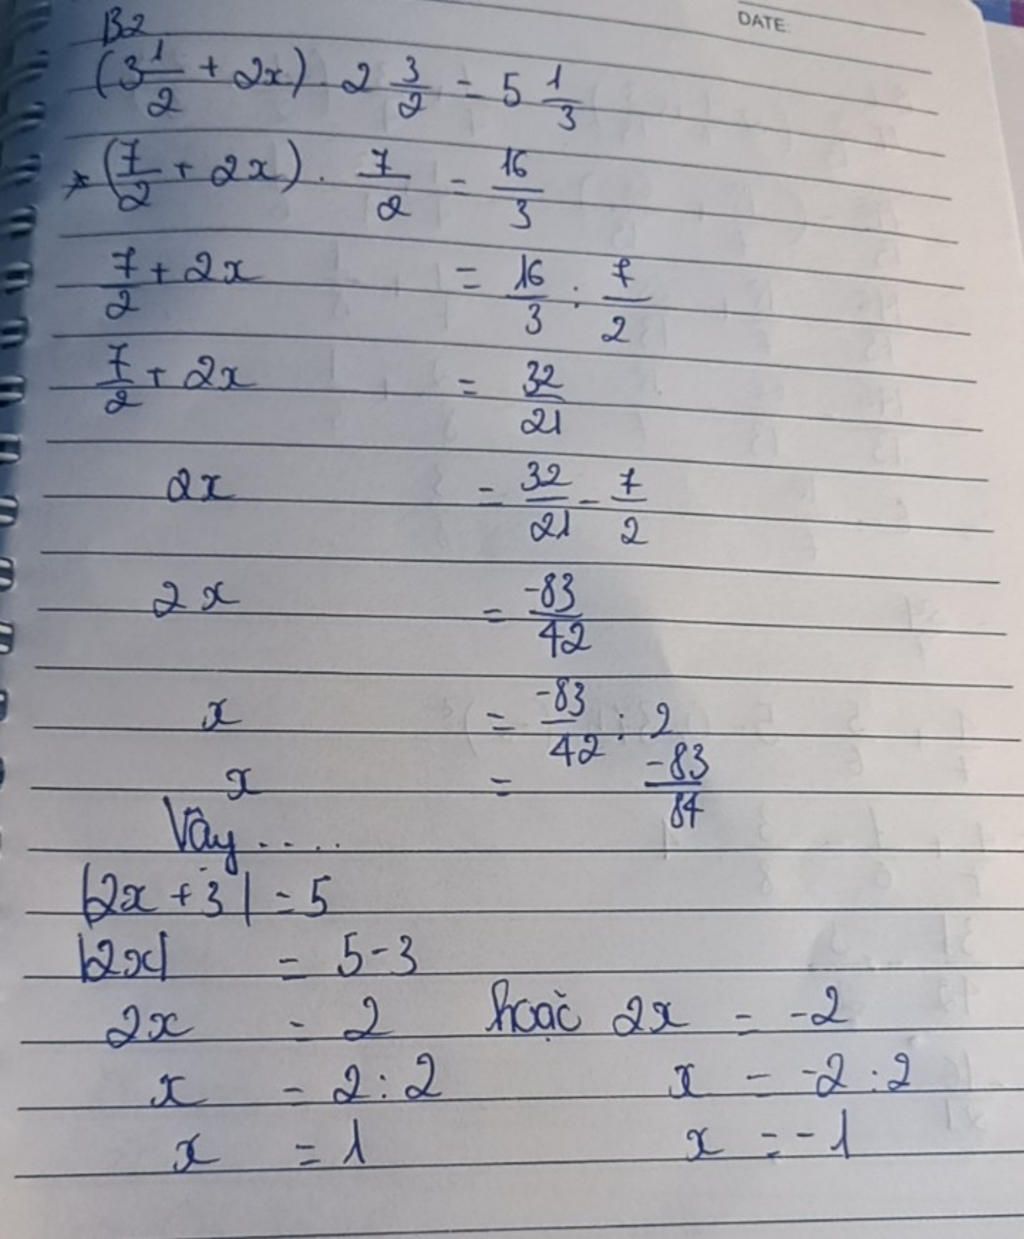 DATE:
B2
(3 1/2 + 2x) . 2 3/2 = 5 1/3
* (7/2 + 2x) . 7/2 = 16/3
7/2 + 2x = 16/3 : 7/2
7/2 + 2x = 32/21
2x = 32/21 - 7/2
2x = -83/42
x = -83/42 : 2
x = -83/84
Vậy ....
|2x + 3| = 5
|2x| = 5-3
2x = 2 hoặc 2x = -2
x = 2:2 x = -2:2
x = 1 x = -1